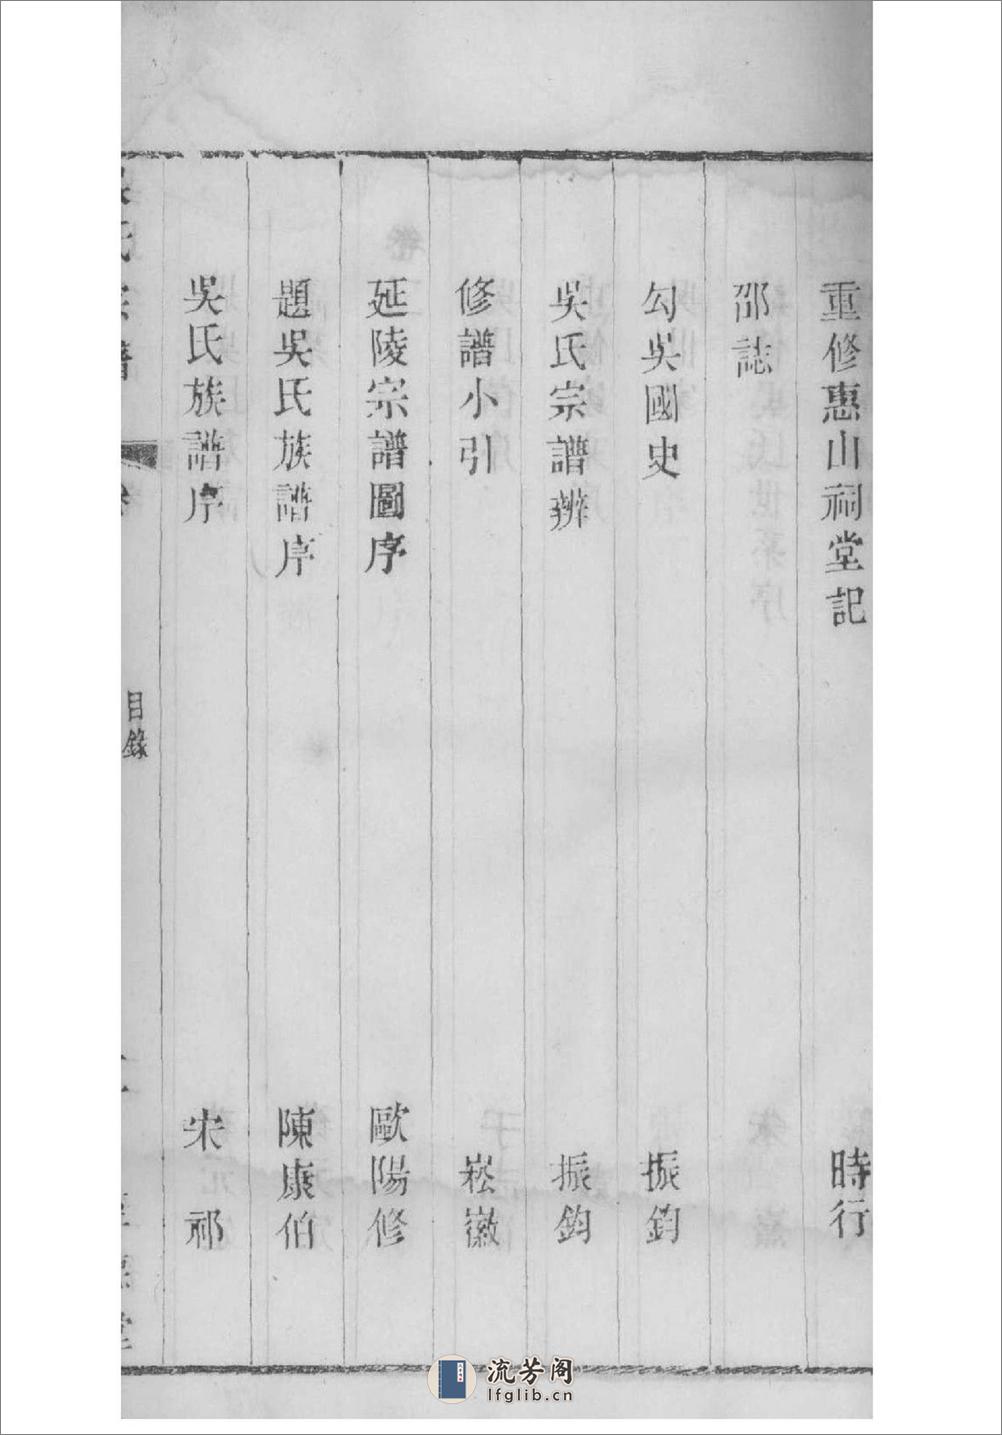 重修惠山祠堂記 時行
邵誌
勾吳國史 振鈞
吳氏宗譜辨 振鈞
修譜小引 崧徽
延陵宗譜圖序 歐陽修
題吳氏族譜序 陳康伯
吳氏族譜序 宋祁
目錄
流芳阁
lfglib.cn